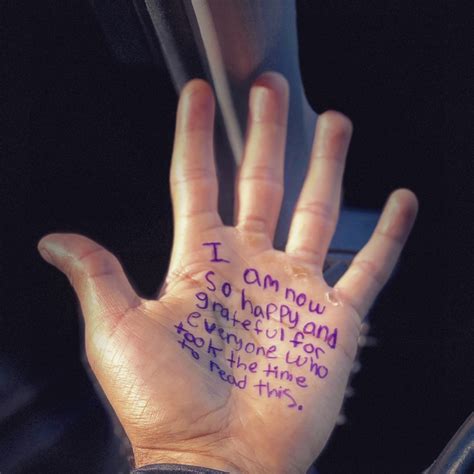 I am now
so happy and
grateful for
everyone who
took the time
to read this.